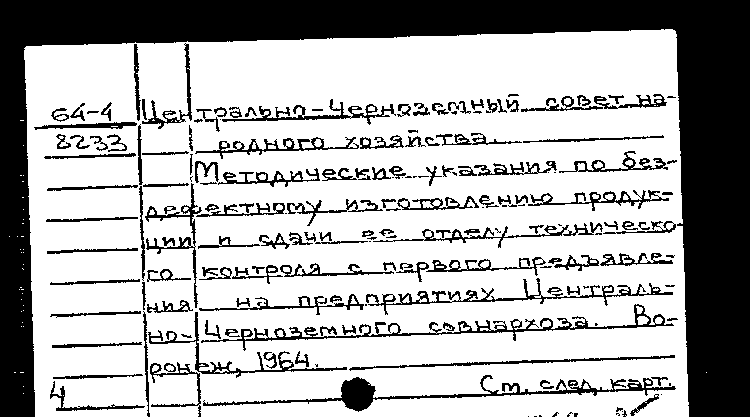 64-4 Центрально-Черноземный совет на-
8233 родного хозяйства.
Методические указания по без-
дефектному изготовлению продук-
ции и сдачи ее отделу техническо-
го контроля с первого предъявле-
ния на предприятиях Централь-
но-Черноземного совнархоза. Во-
ронеж, 1964.
4 См. след. карт.